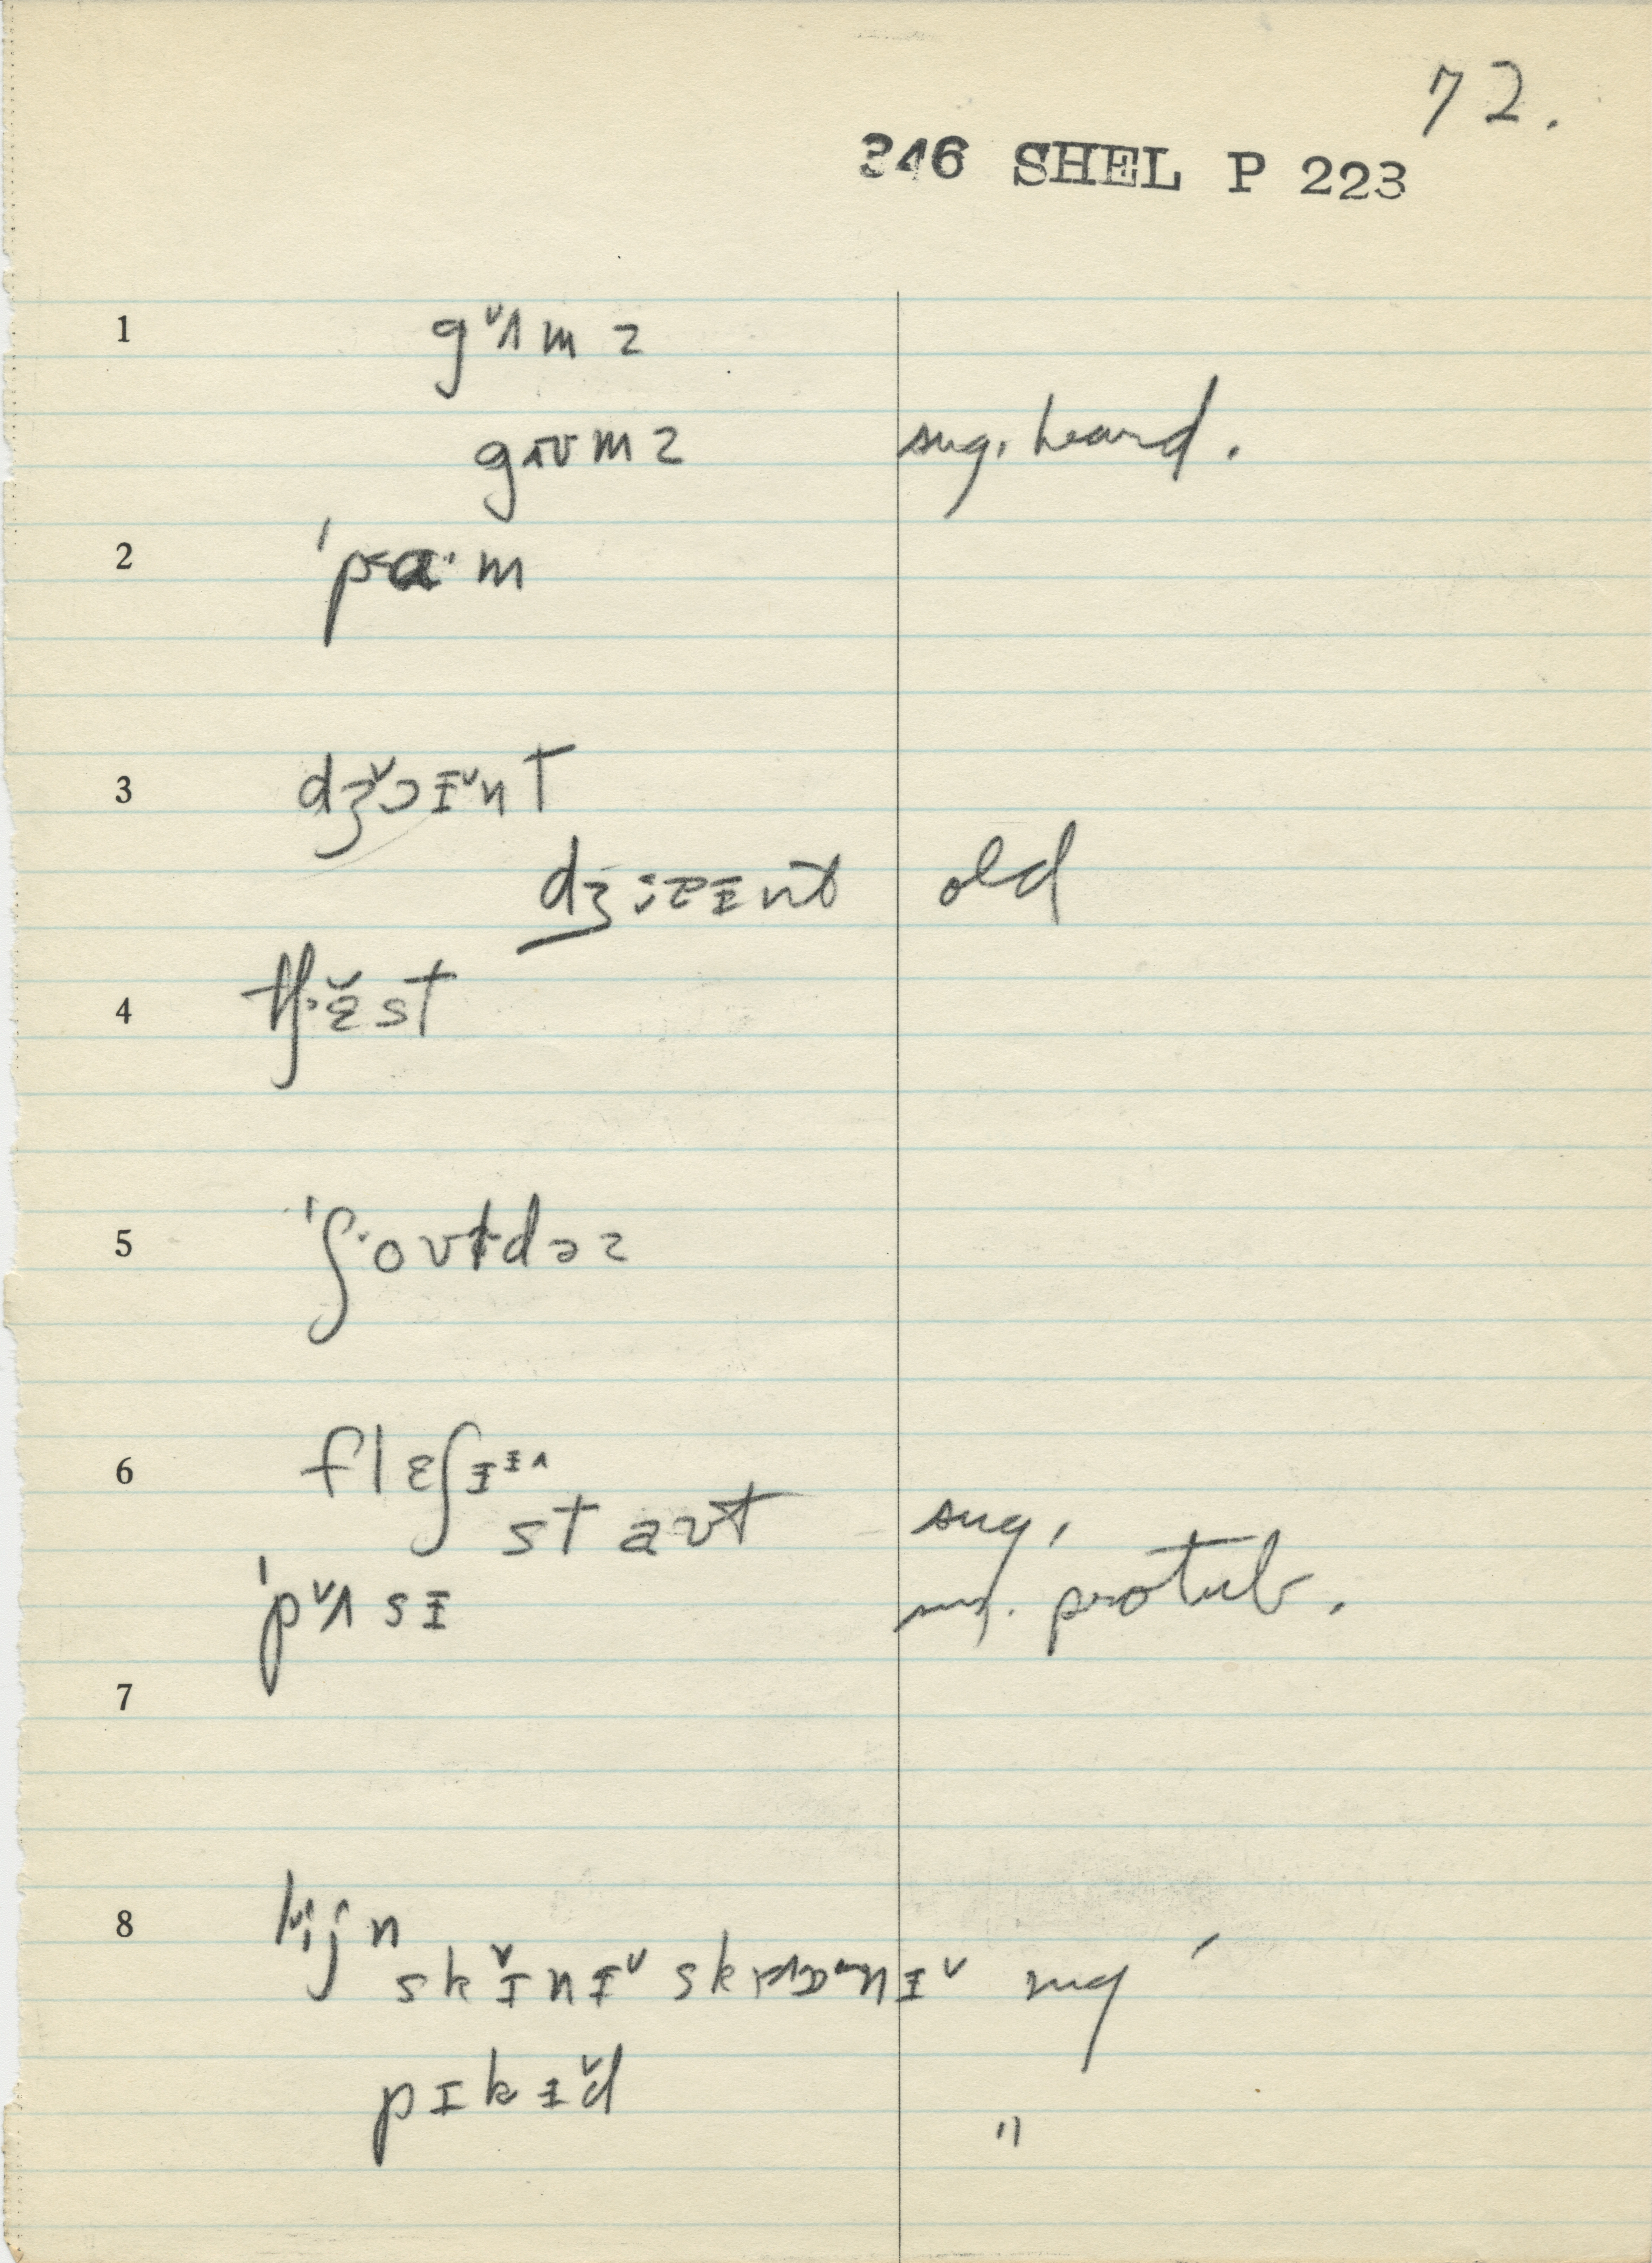 72.
346 SHEL P 223
1 gᵛʌmz
gɪʊmz sug. heard.
2 ˈpɑ·m
3 dʒˇɔɪᵛnt
dʒ:ɐɪnt old
4 tʃ·ɛ̌st
5 ˈʃ·oʊɫdəz
6 flɛʃɪ
staʊt sug.
ˈpᵛʌsɪ sug. protub.
7
8
skɪ̌nɪᵛ sug
pɪkɪᵛd "